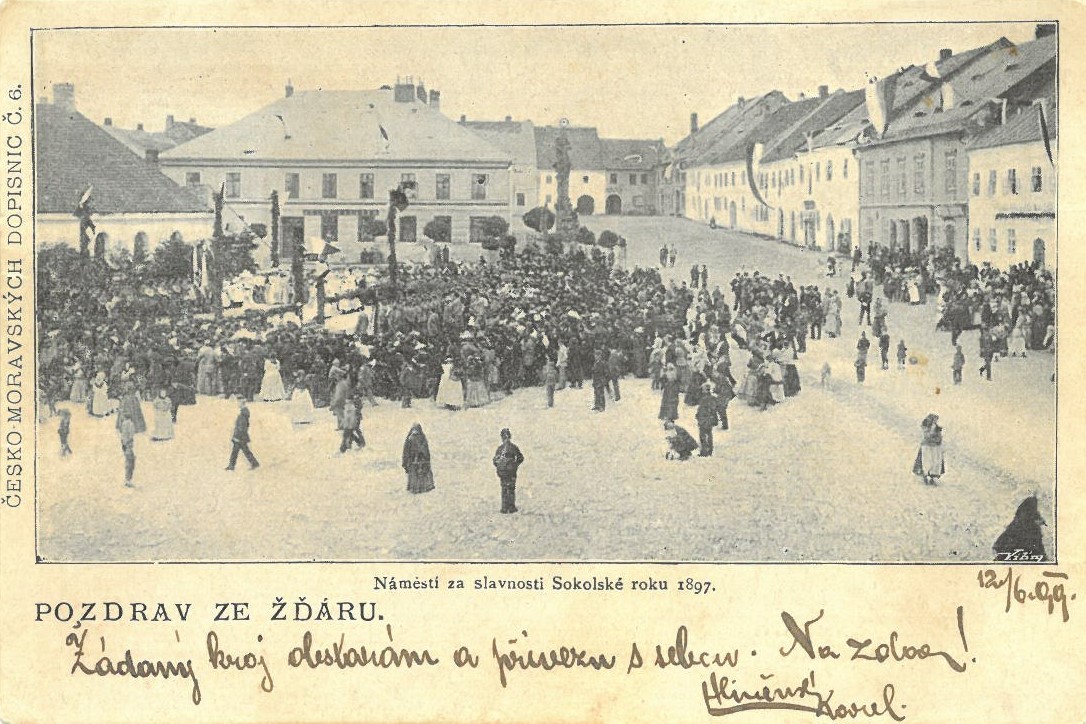 ČESKO-MORAVSKÝCH DOPISNIC Č. 6.
Náměstí za slavnosti Sokolské roku 1897.
12/6.99.
POZDRAV ZE ŽĎÁRU.
Žádaný kroj obstarám a přivezu s sebou. Na zdar!
Karel.